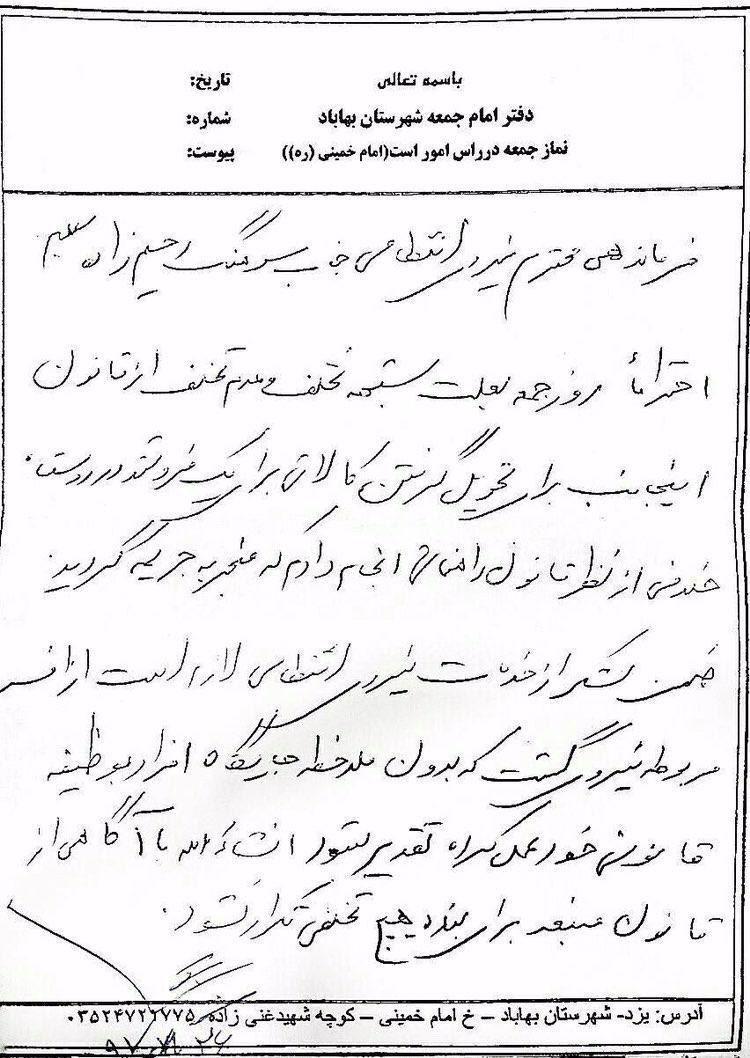 باسمه تعالی
دفتر امام جمعه شهرستان بهاباد
نماز جمعه درراس امور است(امام خمینی (ره))
تاریخ:
شماره:
پیوست:
فرماندهی محترم نیروی انتظامی جناب سرهنگ رحیم زاده
احتراماً روز جمعه بعلت شبهه تخلف و عدم تخلف از قانون
اینجانب برای تحویل گرفتن کالائی برای یک فروشنده در روستا
خلافی از نظر قانون راهنمائی انجام دادم که منجر به جریمه گردید
ضمن تشکر از خدمات نیروی انتظامی لازم است از افسر
مربوطه نیروی گشت که بدون ملاحظه جایگاه افراد بوظیفه
قانونی خود عمل کرده تقدیر بشود انشاءالله با آگاهی از
قانون منبعد برای بنده هیچ تخلفی تکرار نشود.
آدرس: یزد- شهرستان بهاباد – خ امام خمینی – کوچه شهیدغنی زاده ۰۳۵۲۴۷۲۲۷۷۵